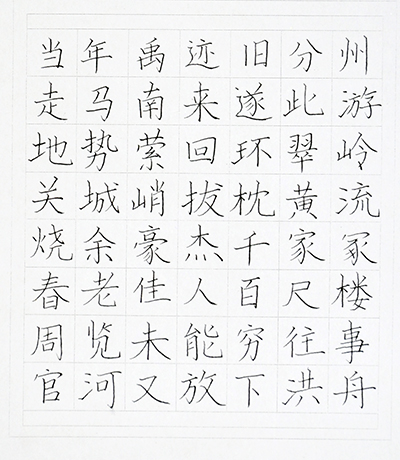 当年禹迹旧分州
走马南来遂此游
地势萦回环翠岭
关城峭拔枕黄流
烧余豪杰千家冢
春老佳人百尺楼
周览未能穷往事
官河又放下洪舟